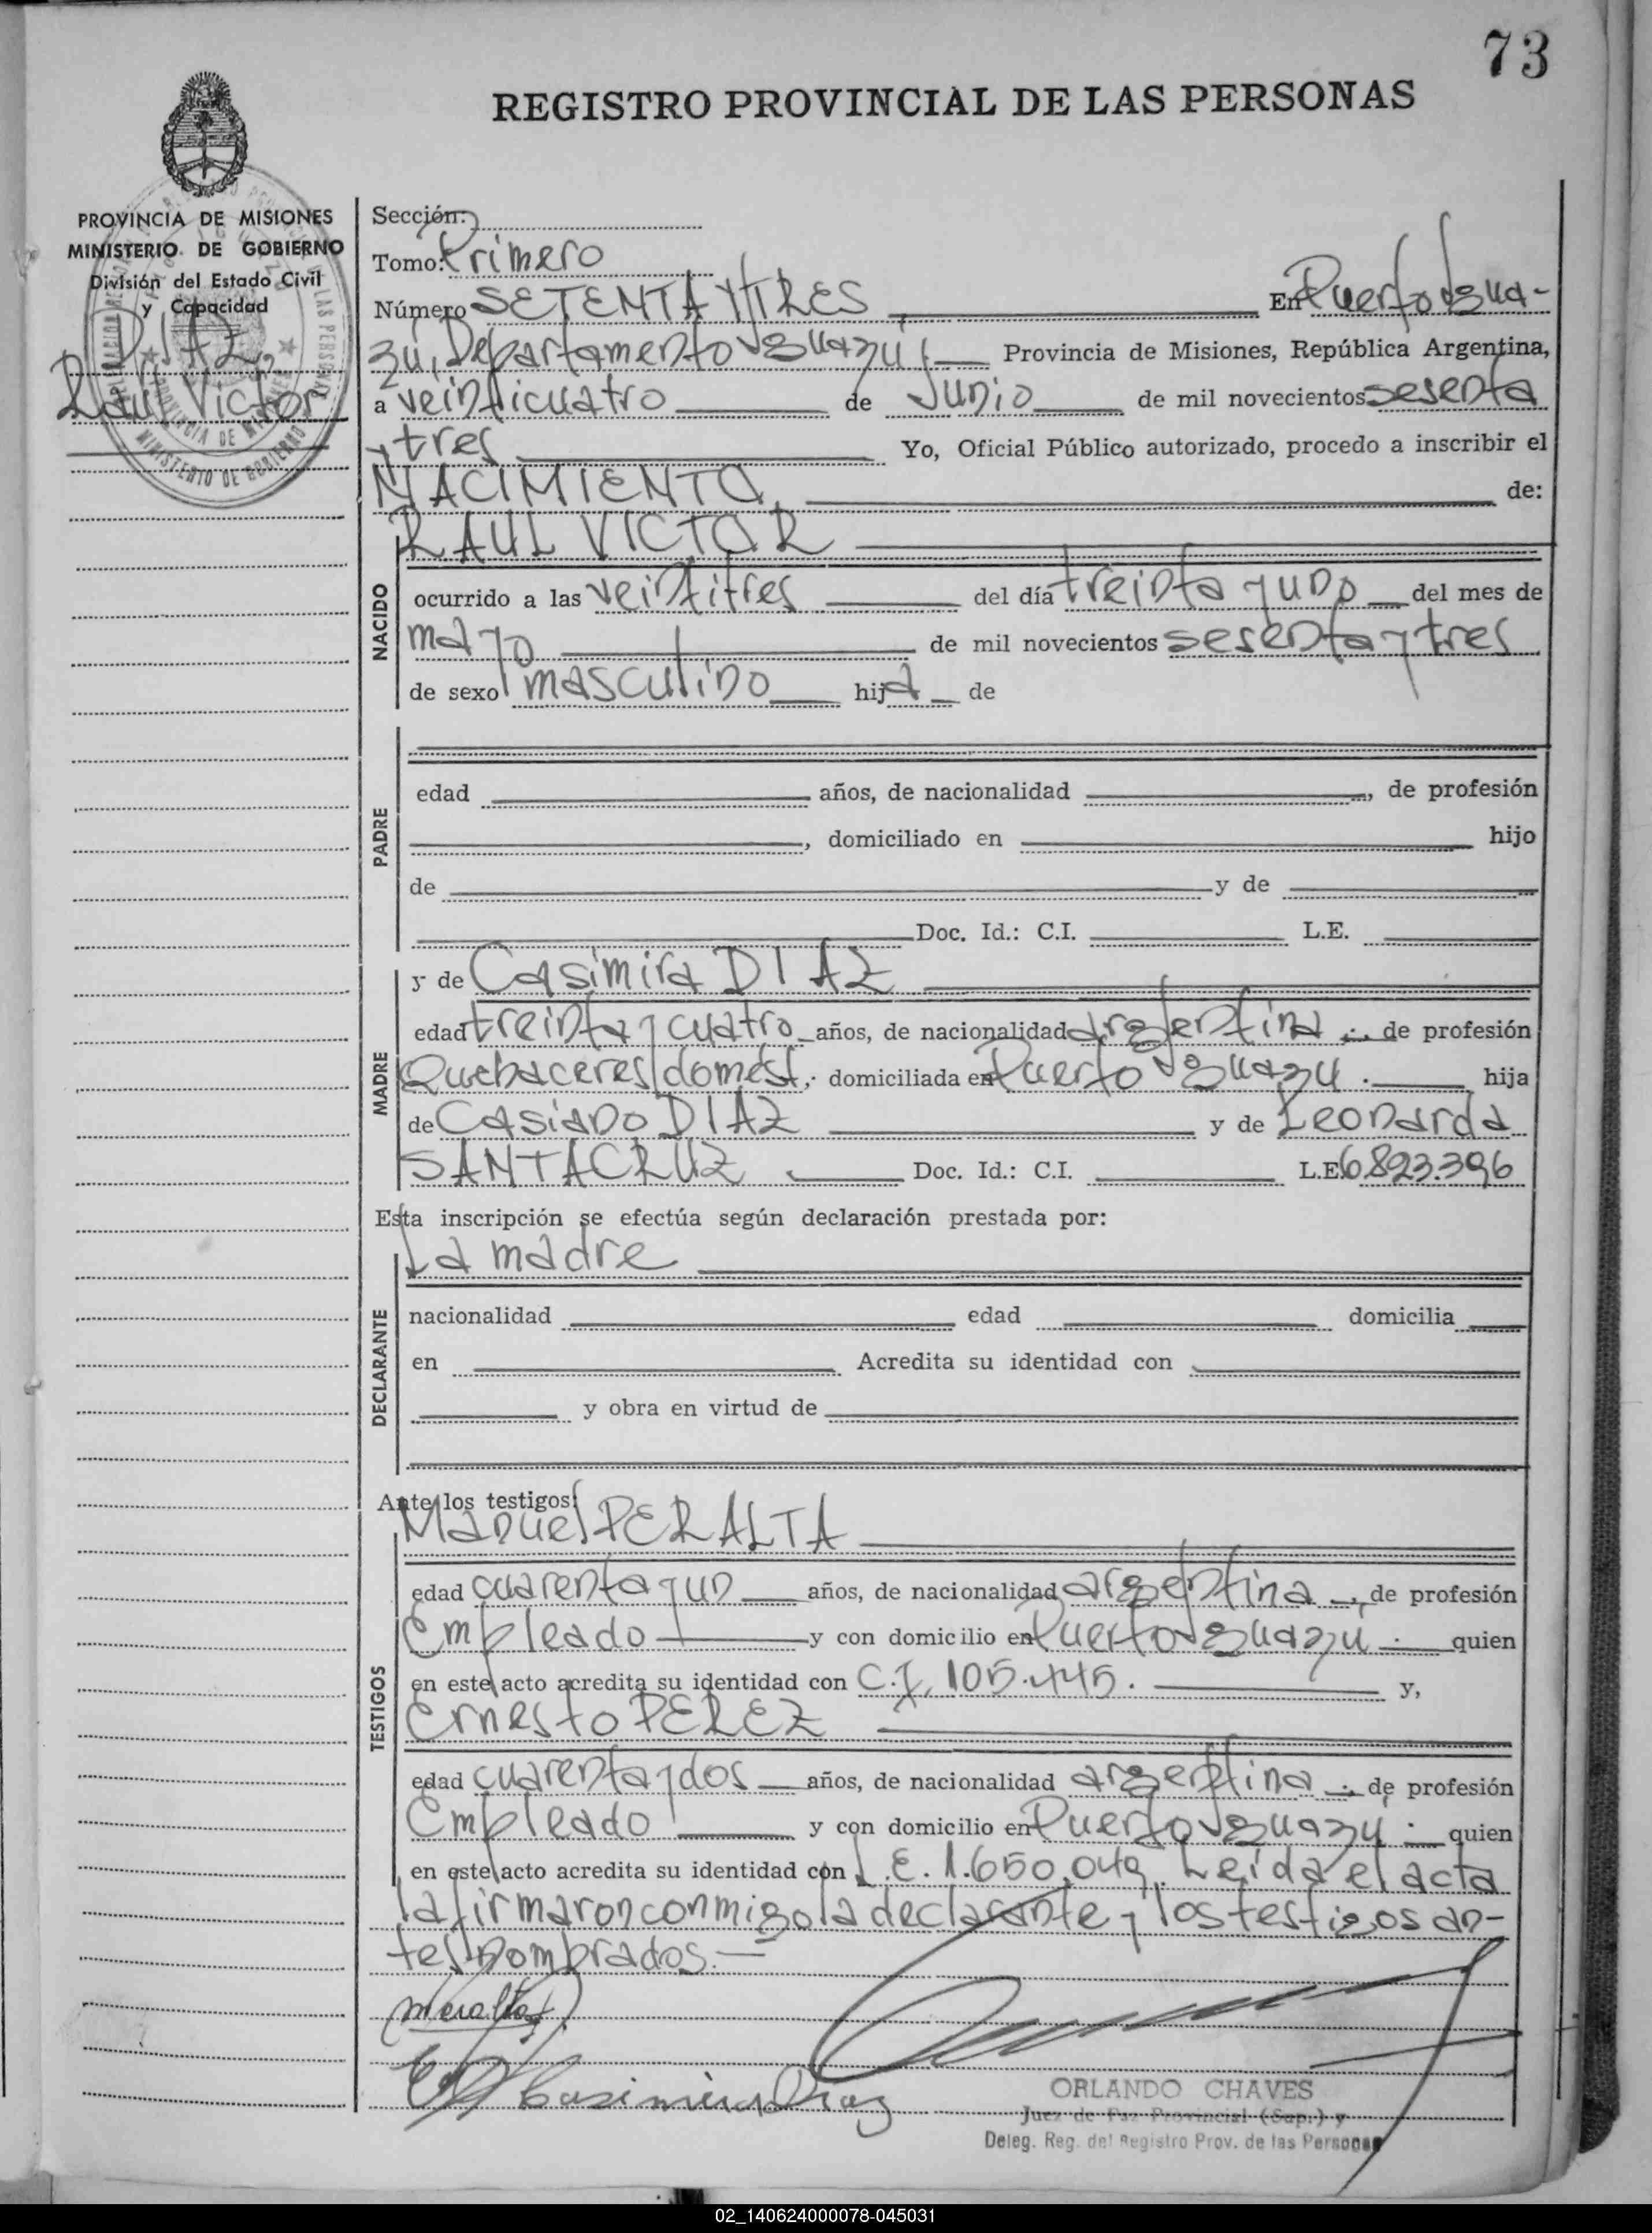 73
REGISTRO PROVINCIAL DE LAS PERSONAS
PROVINCIA DE MISIONES
MINISTERIO DE GOBIERNO
División del Estado Civil
y Capacidad
DIAZ,
Raúl Victor
Sección:
Tomo: Primero
Número SETENTA Y TRES, En Puerto Igua-
zú, Departamento Iguazú, Provincia de Misiones, República Argentina,
a veinticuatro de Junio de mil novecientos sesenta
y tres Yo, Oficial Público autorizado, procedo a inscribir el
NACIMIENTO, de:
RAUL VICTOR
NACIDO
ocurrido a las veintitres del día treinta y uno del mes de
mayo de mil novecientos sesenta y tres
de sexo masculino hija de
PADRE
edad años, de nacionalidad , de profesión
, domiciliado en hijo
de y de
Doc. Id.: C.I. L.E.
MADRE
y de Casimira DIAZ
edad treinta y cuatro años, de nacionalidad argentina . de profesión
Quehaceres domést. domiciliada en Puerto Iguazú . hija
de Casiano DIAZ y de Leonarda
SANTACRUZ Doc. Id.: C.I. L.E. 6.823.396
Esta inscripción se efectúa según declaración prestada por:
La madre
DECLARANTE
nacionalidad edad domicilia
en Acredita su identidad con
y obra en virtud de
Ante los testigos:
Manuel PERALTA
TESTIGOS
edad cuarenta y un años, de nacionalidad argentina ., de profesión
Empleado y con domicilio en Puerto Iguazú . quien
en este acto acredita su identidad con C.I. 105.445. y,
Ernesto PEREZ
edad cuarenta y dos años, de nacionalidad argentina . de profesión
Empleado y con domicilio en Puerto Iguazú . quien
en este acto acredita su identidad con L.E. 1.650.049. Leída el acta
la firmaron conmigo la declarante y los testigos an-
tes nombrados.-
MPeralta
Casimira Diaz
ORLANDO CHAVES
Juez de Paz Provincial (Sup.) y
Deleg. Reg. del Registro Prov. de las Personas
02_140624000078-045031